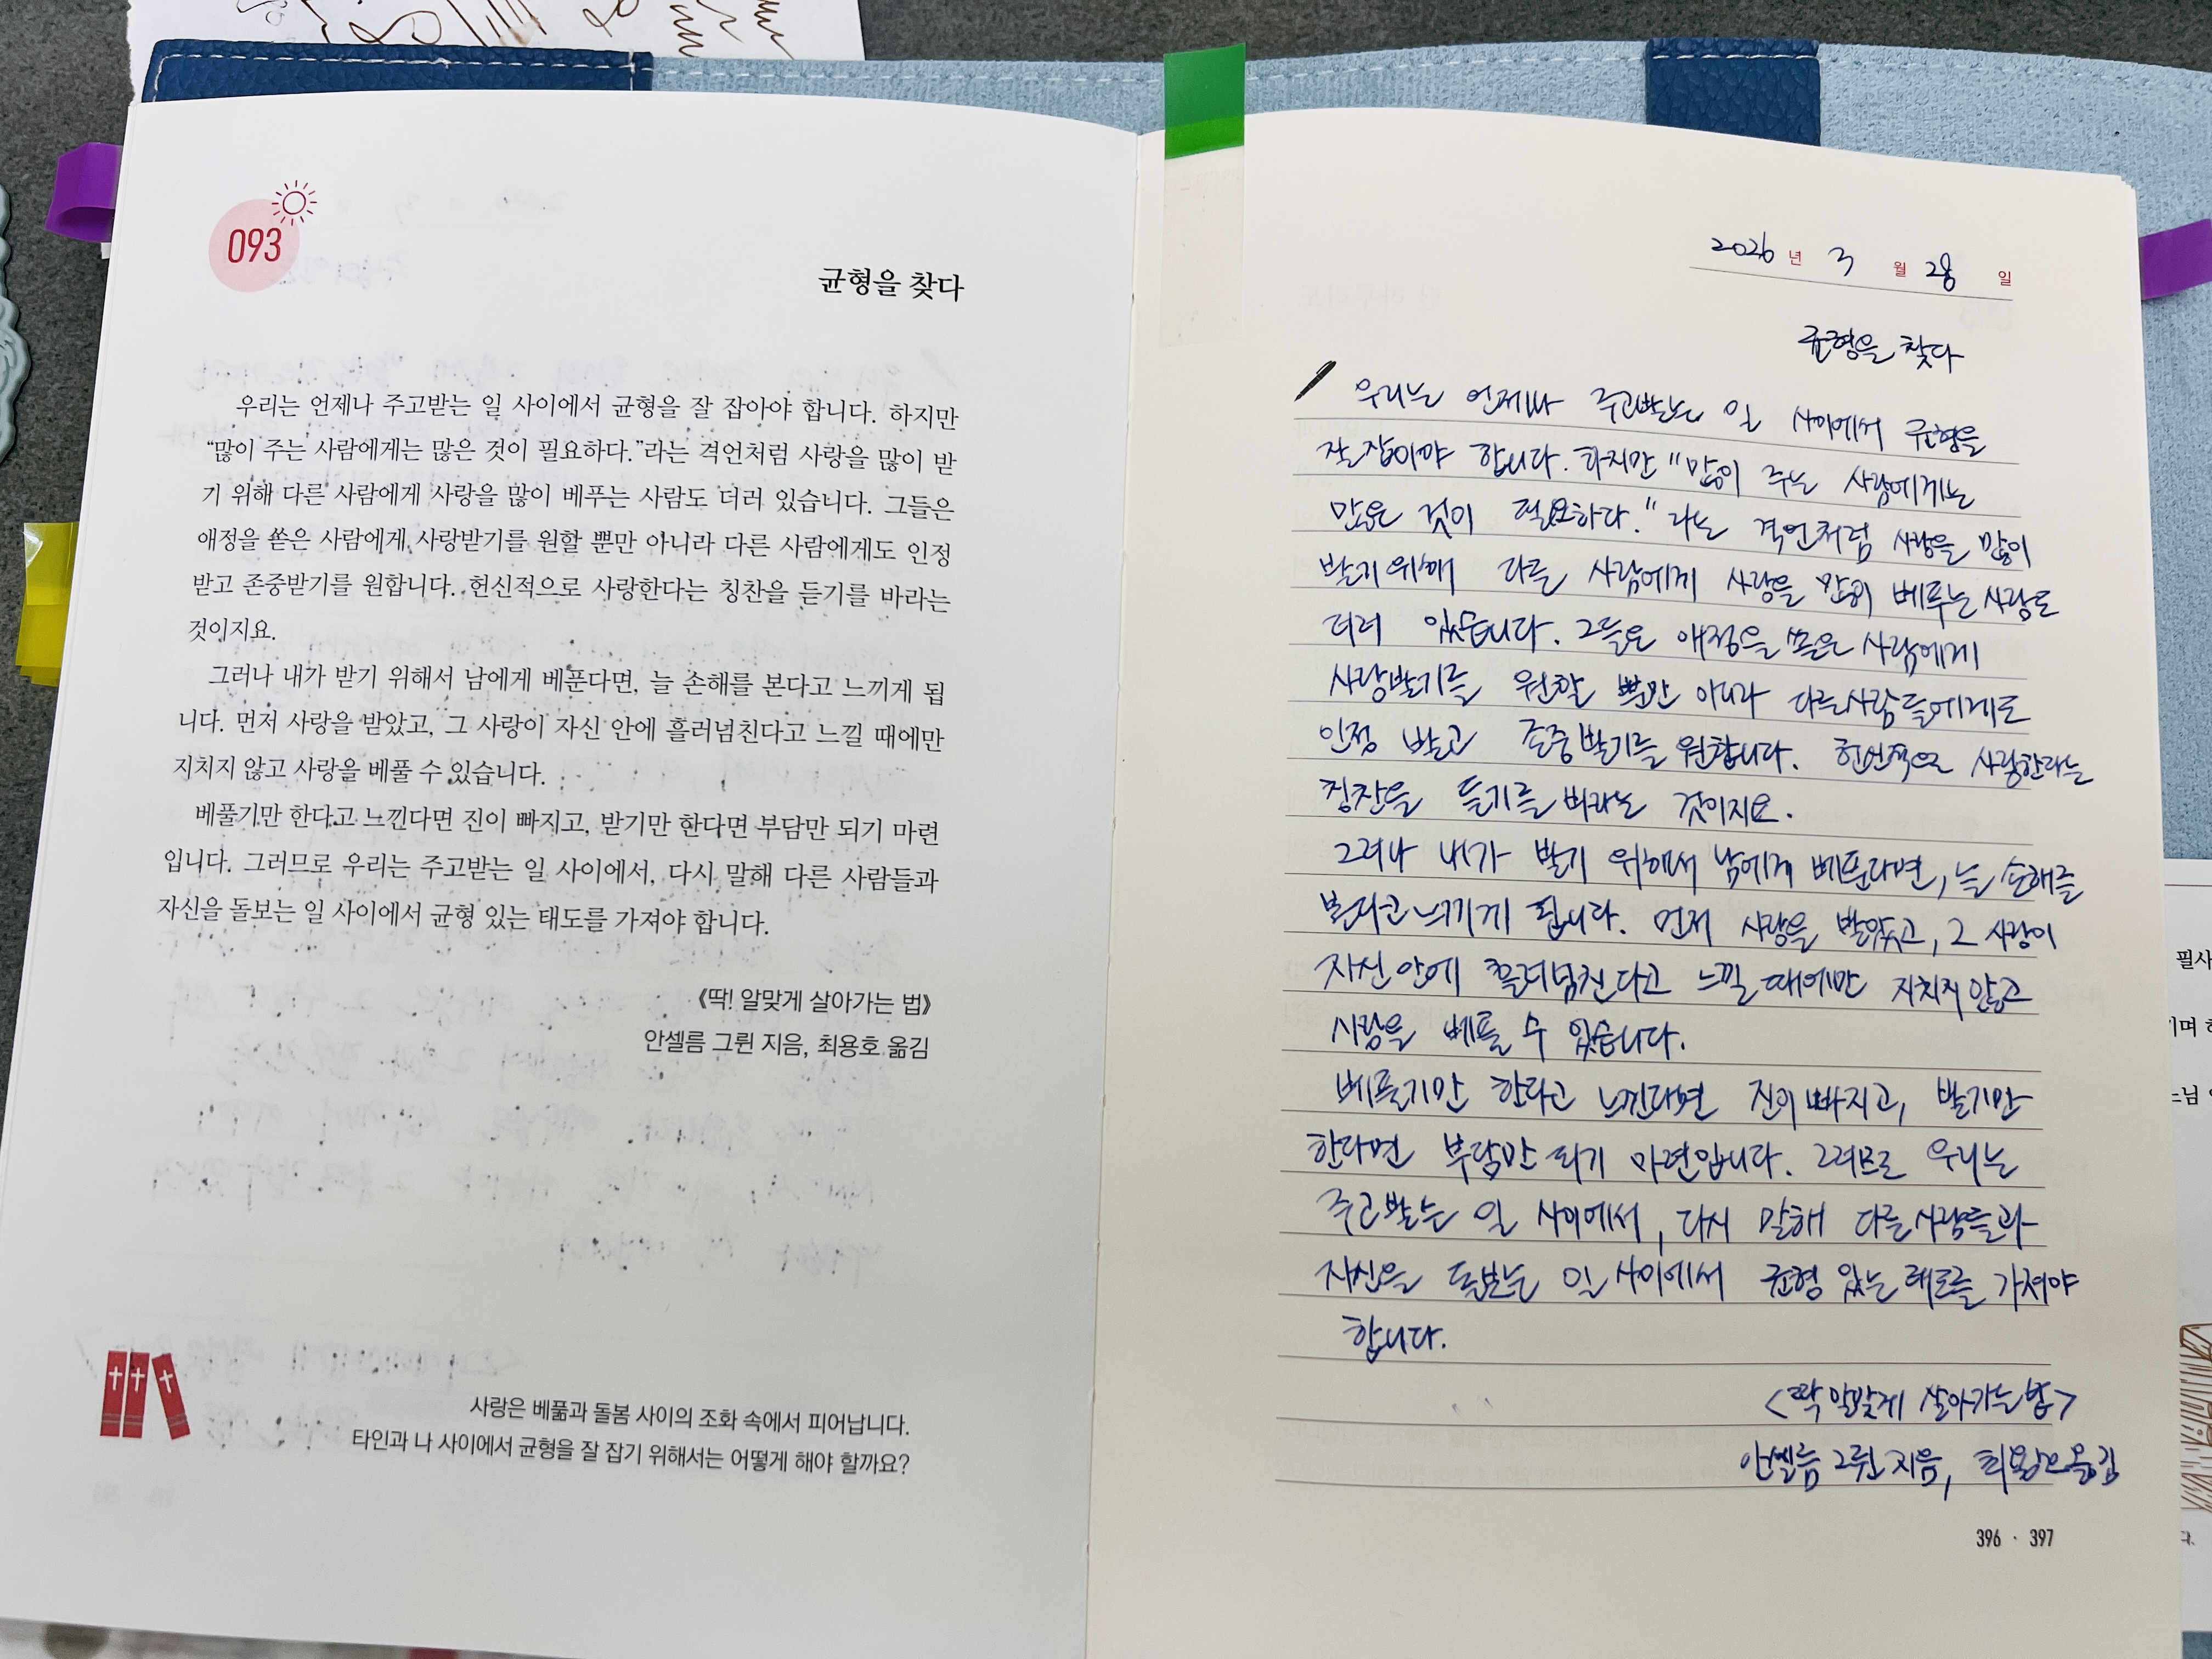 093
균형을 찾다
우리는 언제나 주고받는 일 사이에서 균형을 잘 잡아야 합니다. 하지만
“많이 주는 사람에게는 많은 것이 필요하다.”라는 격언처럼 사랑을 많이 받
기 위해 다른 사람에게 사랑을 많이 베푸는 사람도 더러 있습니다. 그들은
애정을 쏟은 사람에게 사랑받기를 원할 뿐만 아니라 다른 사람에게도 인정
받고 존중받기를 원합니다. 헌신적으로 사랑한다는 칭찬을 듣기를 바라는
것이지요.
그러나 내가 받기 위해서 남에게 베푼다면, 늘 손해를 본다고 느끼게 됩
니다. 먼저 사랑을 받았고, 그 사랑이 자신 안에 흘러넘친다고 느낄 때에만
지치지 않고 사랑을 베풀 수 있습니다.
베풀기만 한다고 느낀다면 진이 빠지고, 받기만 한다면 부담만 되기 마련
입니다. 그러므로 우리는 주고받는 일 사이에서, 다시 말해 다른 사람들과
자신을 돌보는 일 사이에서 균형 있는 태도를 가져야 합니다.
《딱! 알맞게 살아가는 법》
안셀름 그륀 지음, 최용호 옮김
사랑은 베풂과 돌봄 사이의 조화 속에서 피어납니다.
타인과 나 사이에서 균형을 잘 잡기 위해서는 어떻게 해야 할까요?
2026 년 3 월 28 일
균형을 찾다
우리는 언제나 주고받는 일 사이에서 균형을
잘 잡아야 합니다. 하지만 "많이 주는 사람에게는
많은 것이 필요하다." 라는 격언처럼 사랑을 많이
받기 위해 다른 사람에게 사랑을 많이 베푸는 사람도
더러 있습니다. 그들은 애정을 쏟은 사람에게
사랑받기를 원할 뿐만 아니라 다른사람들에게도
인정 받고 존중받기를 원합니다. 헌신적으로 사랑한다는
칭찬을 듣기를 바라는 것이지요.
그러나 내가 받기 위해서 남에게 베푼다면, 늘 손해를
본다고 느끼게 됩니다. 먼저 사랑을 받았고, 그 사랑이
자신 안에 흘러넘친다고 느낄 때에만 지치지 않고
사랑을 베풀 수 있습니다.
베풀기만 한다고 느낀다면 진이 빠지고, 받기만
한다면 부담만 되기 마련입니다. 그러므로 우리는
주고받는 일 사이에서, 다시 말해 다른사람들과
자신을 돌보는 일 사이에서 균형 있는 태도를 가져야
합니다.
<딱 알맞게 살아가는 법>
안셀름 그륀 지음, 최용호 옮김
396 · 397
필사
기며
느님